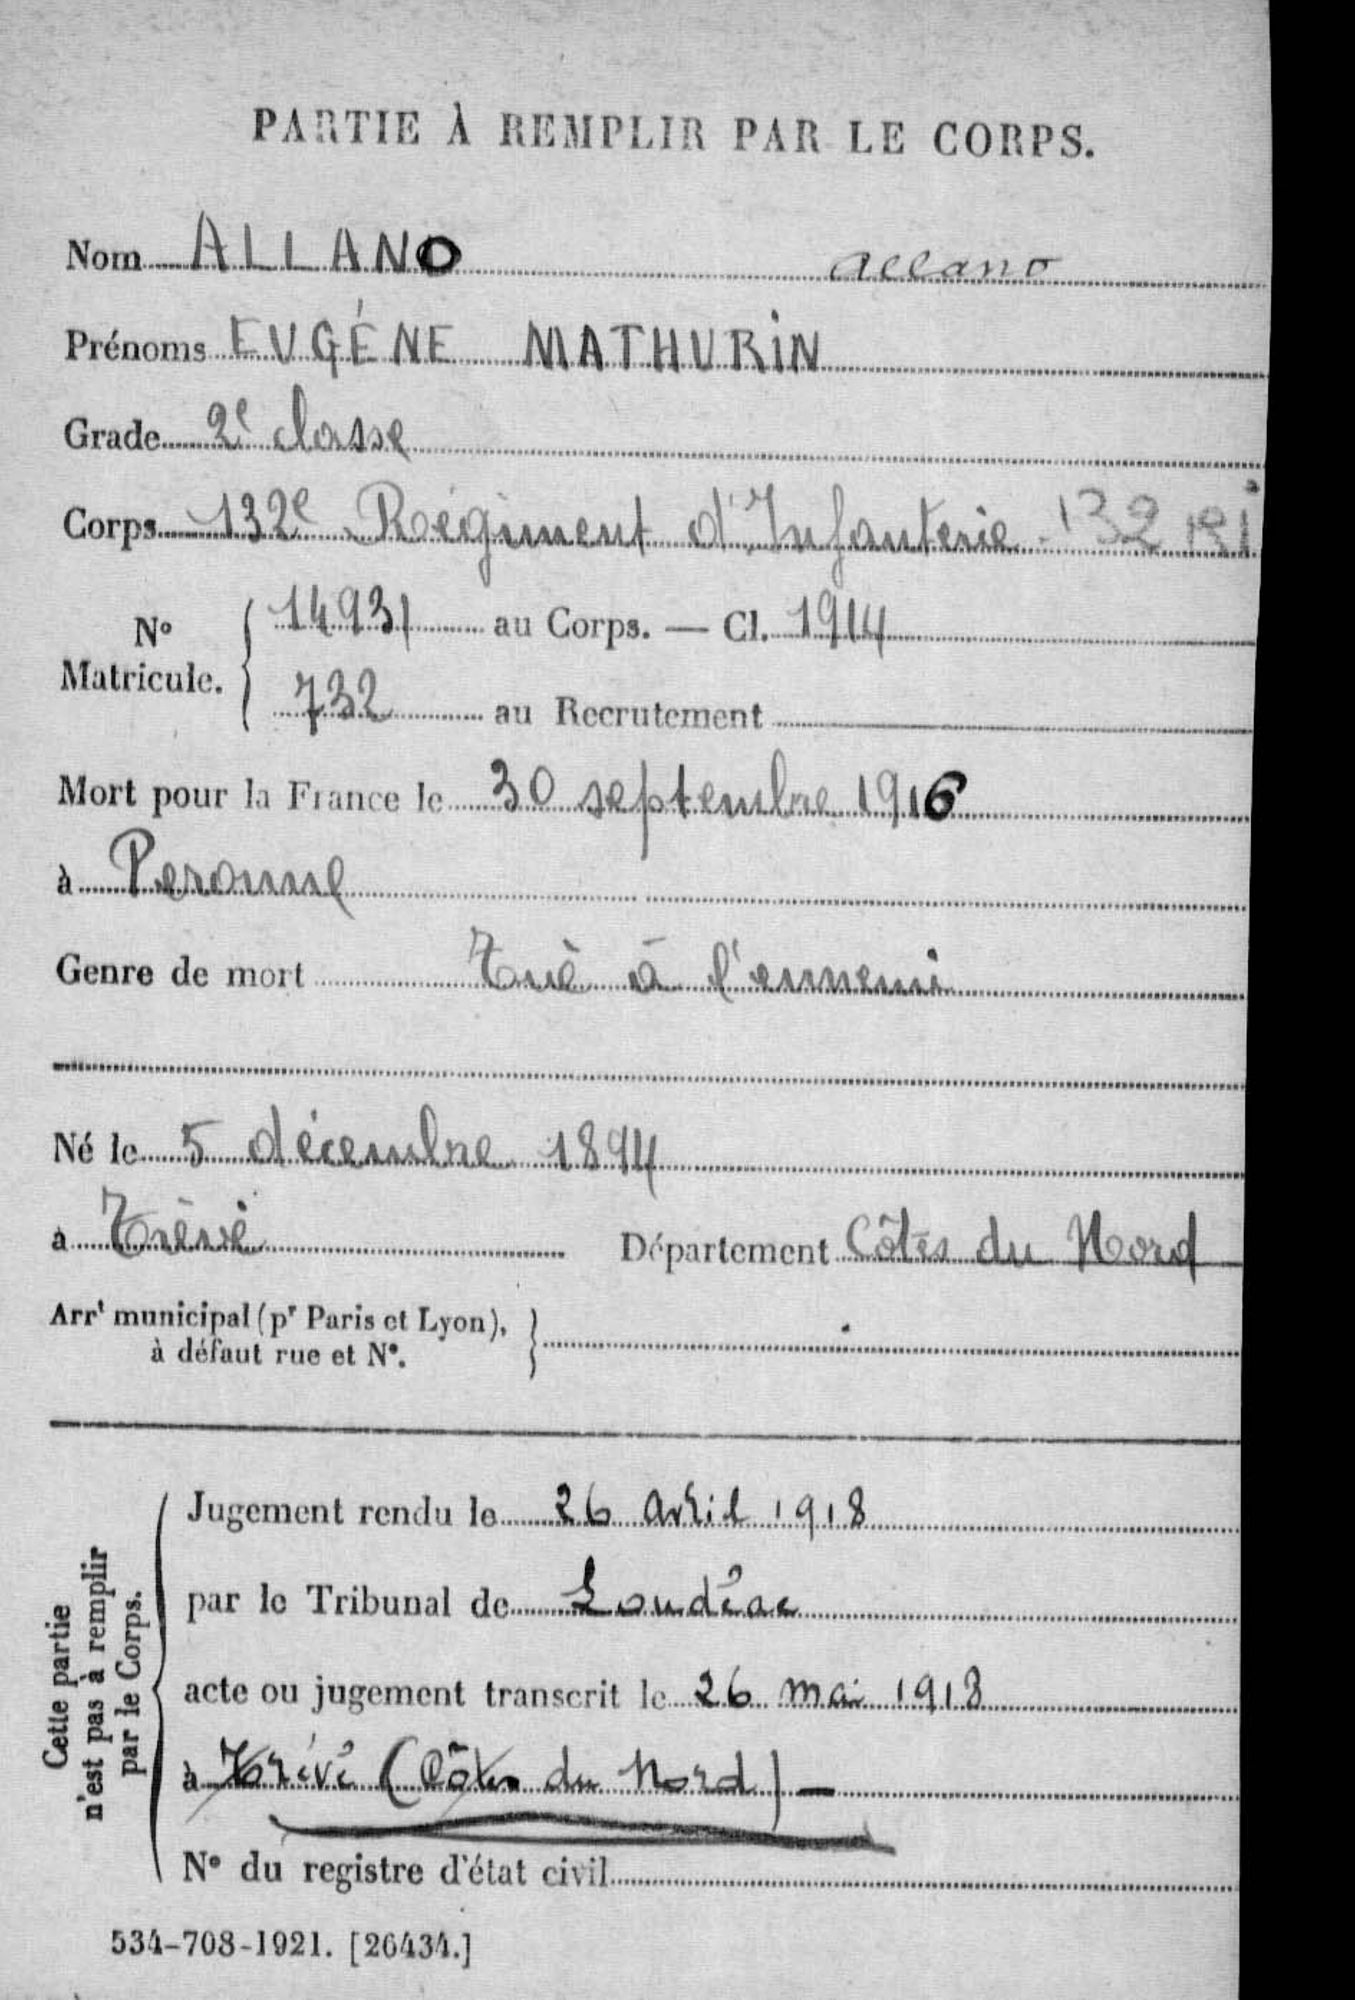 PARTIE À REMPLIR PAR LE CORPS.
Nom ALLANO allano
Prénoms EUGÉNE MATHURIN
Grade 2e classe
Corps 132e Régiment d'Infanterie 132 RI
No Matricule. 14931 au Corps. — Cl. 1914
732 au Recrutement
Mort pour la France le 30 septembre 1916
à Peronne
Genre de mort Tué à l'ennemi
Né le 5 décembre 1894
à Trévé Département Côtes du Nord
Arrt municipal (pr Paris et Lyon), à défaut rue et No.
Cette partie n'est pas à remplir par le Corps.
Jugement rendu le 26 avril 1918
par le Tribunal de Loudéac
acte ou jugement transcrit le 26 mai 1918
à Trévé (Côtes du Nord) —
No du registre d'état civil
534-708-1921. [26434.]